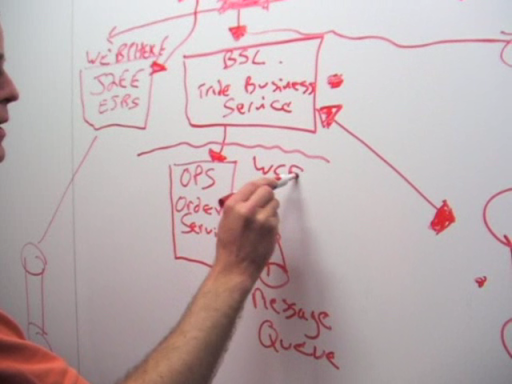 WEBSPHERE
J2EE
EJBS
BSL.
Trade Business
Service
OPS
Order
Servi
WCF
Message
Queue